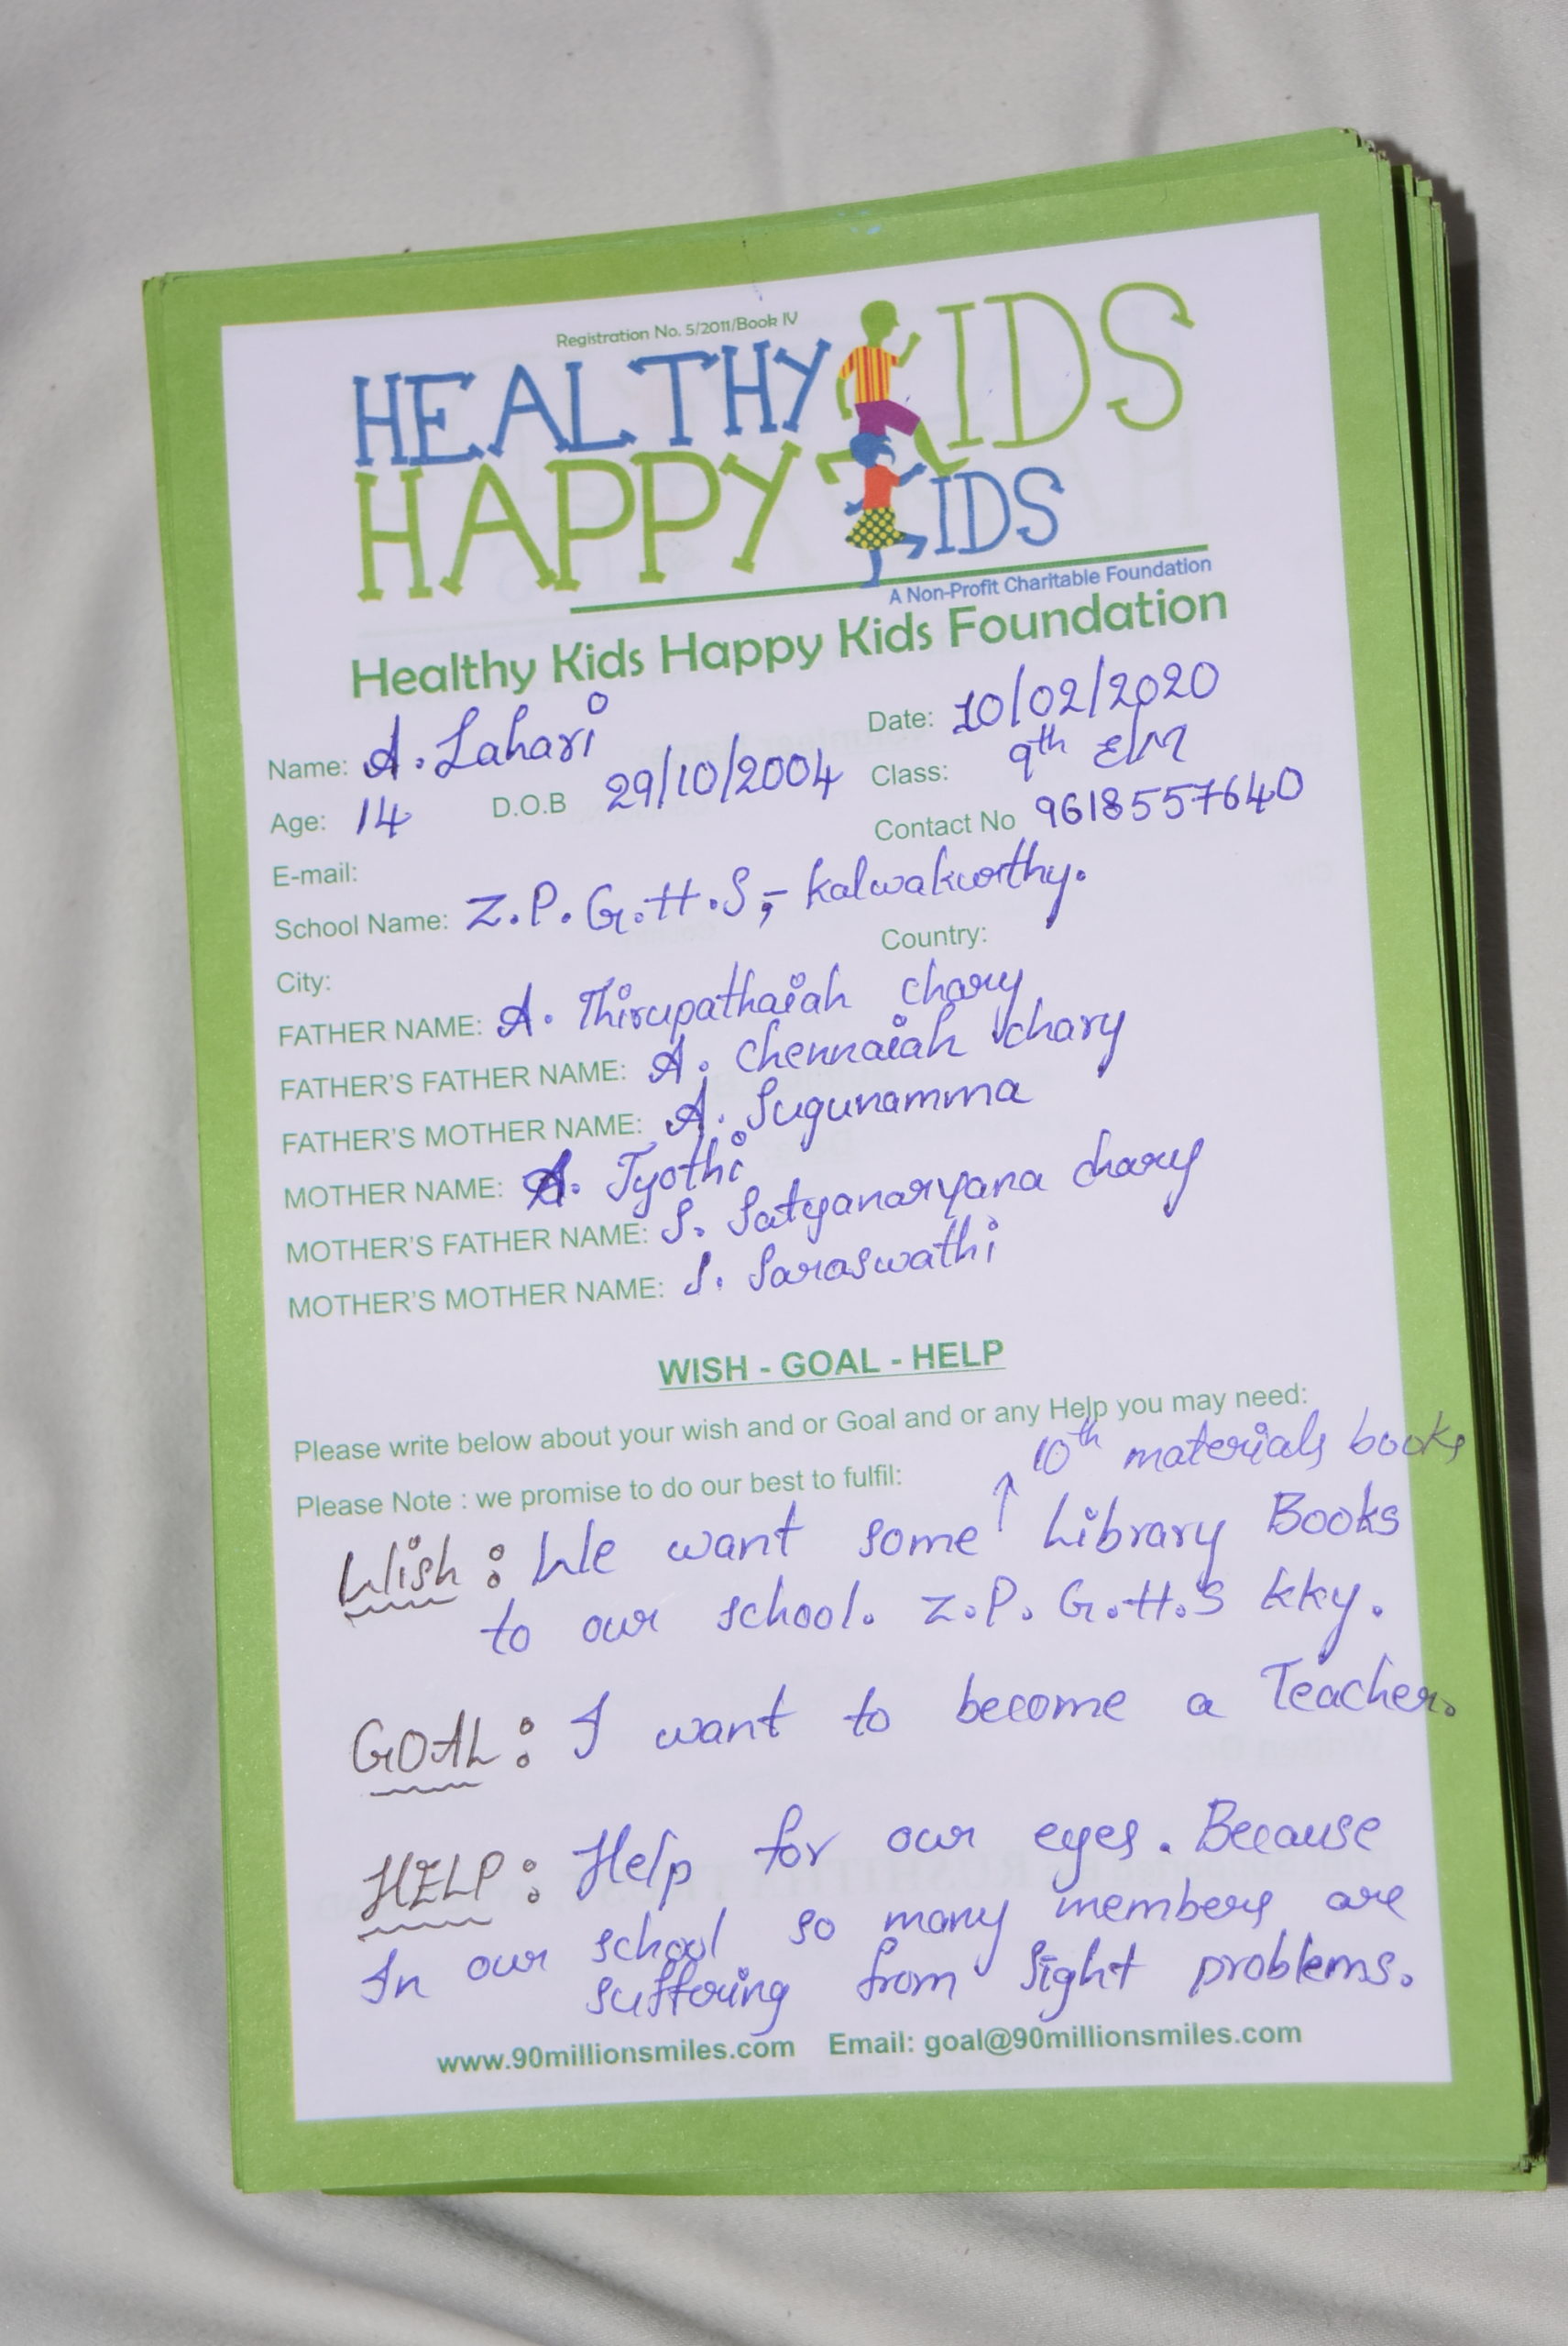 Registration No. 5/2011/Book IV
HEALTHY KIDS
HAPPY KIDS
A Non-Profit Charitable Foundation
Healthy Kids Happy Kids Foundation
Name: A. Lahari Date: 10/02/2020
Age: 14 D.O.B 29/10/2004 Class: 9th E/M
E-mail: Contact No 9618557640
School Name: Z.P.G.H.S,- kalwakurthy.
City: Country:
FATHER NAME: A. Thirupathaiah chary
FATHER'S FATHER NAME: A. Chennaiah chary
FATHER'S MOTHER NAME: A. Sugunamma
MOTHER NAME: A. Jyothi
MOTHER'S FATHER NAME: S. Satyanaryana chary
MOTHER'S MOTHER NAME: S. Saraswathi
WISH - GOAL - HELP
Please write below about your wish and or Goal and or any Help you may need:
10th materials books
Please Note : we promise to do our best to fulfil:
Wish : We want some ↑ Library Books
to our school. Z.P. G.H.S kky.
GOAL : I want to become a Teacher.
HELP : Help for our eyes. Because
In our school so many members are
suffering from sight problems.
www.90millionsmiles.com Email: goal@90millionsmiles.com